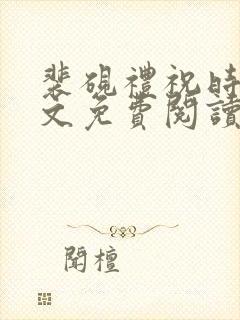 裴硯禮祝時
文免費閱讀
聞檀